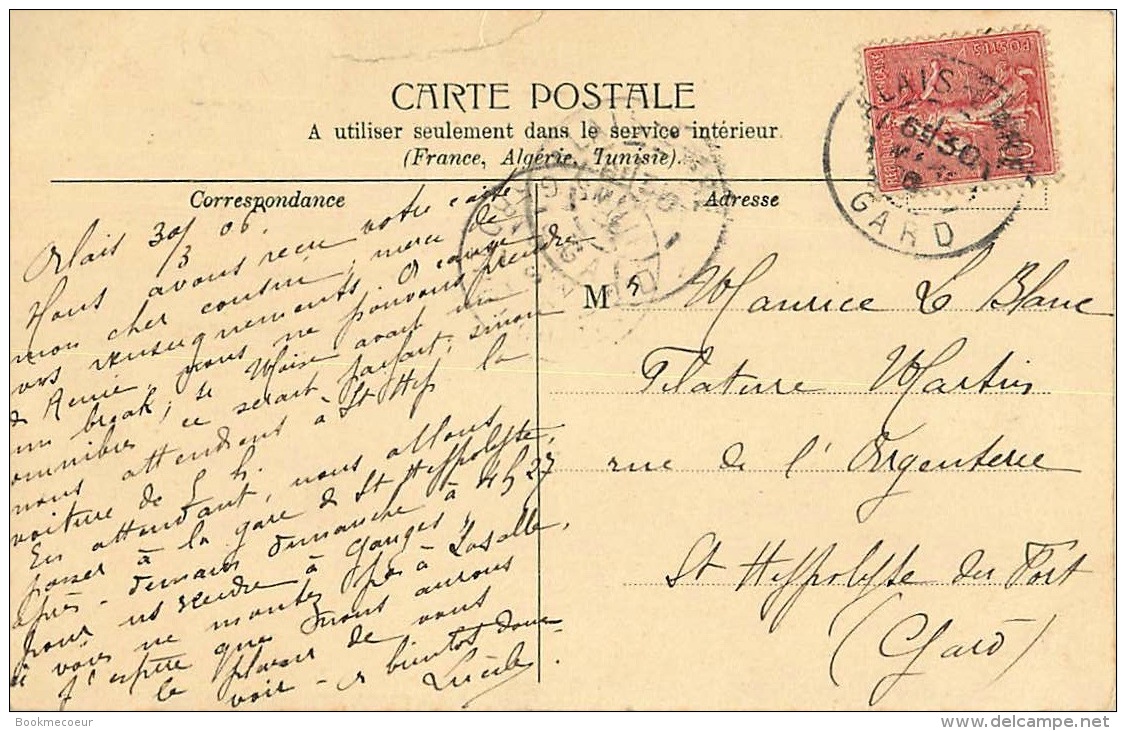 CARTE POSTALE
A utiliser seulement dans le service intérieur
(France, Algérie, Tunisie).
Correspondance
Adresse
Alais 30/3 06.
Nous avons reçu votre carte
mon cher cousin, merci de
vos renseignements. A cause
de nous ne pouvons prendre
un break, si Moire avait un
omnibus ce serait parfait, sinon
nous attendrons à St Hyp. la
voiture de 5 h.
En attendant, nous allons
passer à la gare de St Hyppolyte,
après-demain dimanche à 4h27
pour ns rendre à Ganges,
si vous ne montez pas à Lasalle,
j'espère que nous aurons
le plaisir de vous
voir - A bientôt donc
Lucile
M r Maurice Le Blanc
Filature Martin
rue de l'Argenterie
St Hyppolyte du Fort
(Gard)
POSTES
ALAIS
6 30
GARD
GARD
Bookmecoeur
delcampe.net